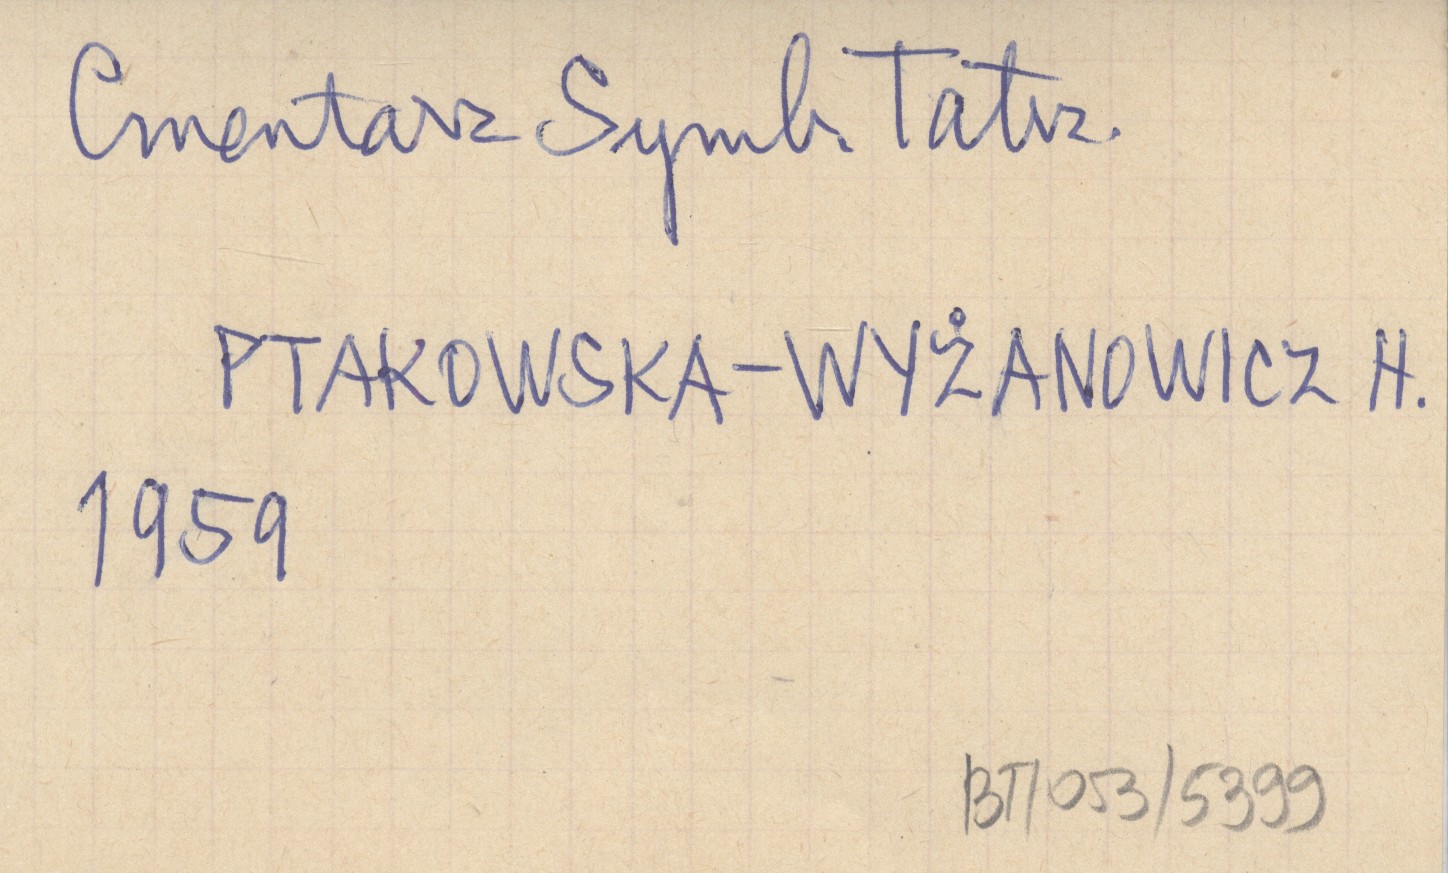 Cmentarz Symb. Tatrz.
PTAKOWSKA-WYŻANOWICZ H.
1959
BT/053/5399